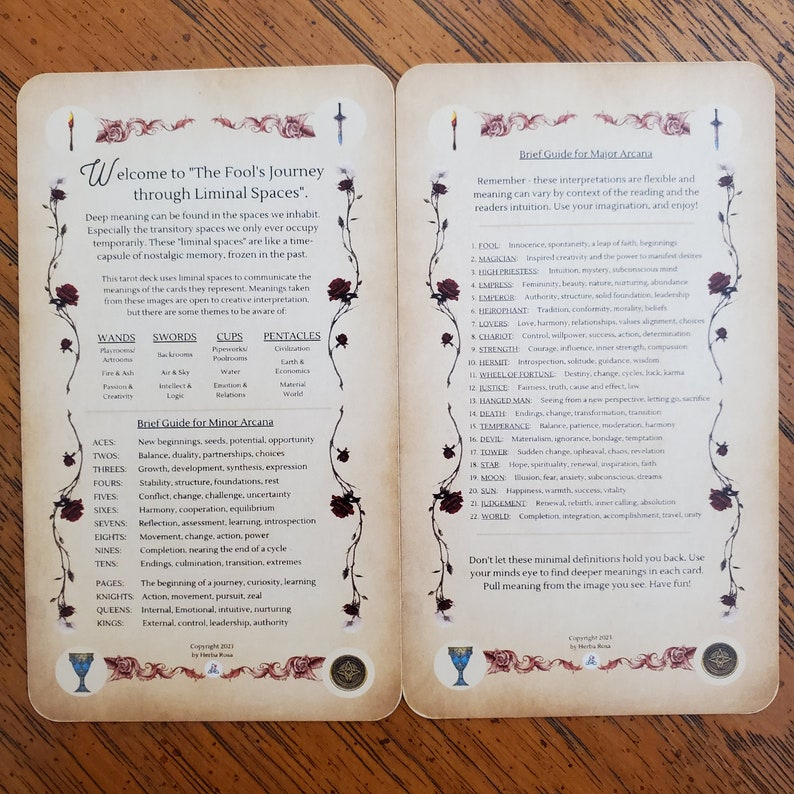 Welcome to "The Fool's Journey
through Liminal Spaces".
Deep meaning can be found in the spaces we inhabit.
Especially the transitory spaces we only ever occupy
temporarily. These "liminal spaces" are like a time-
capsule of nostalgic memory, frozen in the past.
This tarot deck uses liminal spaces to communicate the
meanings of the cards they represent. Meanings taken
from these images are open to creative interpretation,
but there are some themes to be aware of:
WANDS SWORDS CUPS PENTACLES
Playrooms/ Backrooms Pipeworks/ Civilization
Artrooms Poolrooms
Fire & Ash Air & Sky Water Earth &
Economics
Passion & Intellect & Emotion & Material
Creativity Logic Relations World
Brief Guide for Minor Arcana
ACES: New beginnings, seeds, potential, opportunity
TWOS: Balance, duality, partnerships, choices
THREES: Growth, development, synthesis, expression
FOURS: Stability, structure, foundations, rest
FIVES: Conflict, change, challenge, uncertainty
SIXES: Harmony, cooperation, equilibrium
SEVENS: Reflection, assessment, learning, introspection
EIGHTS: Movement, change, action, power
NINES: Completion, nearing the end of a cycle
TENS: Endings, culmination, transition, extremes
PAGES: The beginning of a journey, curiosity, learning
KNIGHTS: Action, movement, pursuit, zeal
QUEENS: Internal, Emotional, intuitive, nurturing
KINGS: External, control, leadership, authority
Copyright 2023
by Herba Rosa
Brief Guide for Major Arcana
Remember - these interpretations are flexible and
meaning can vary by context of the reading and the
readers intuition. Use your imagination, and enjoy!
1. FOOL: Innocence, spontaneity, a leap of faith, beginnings
2. MAGICIAN: Inspired creativity and the power to manifest desires
3. HIGH PRIESTESS: Intuition, mystery, subconscious mind
4. EMPRESS: Femininity, beauty, nature, nurturing, abundance
5. EMPEROR: Authority, structure, solid foundation, leadership
6. HEIROPHANT: Tradition, conformity, morality, beliefs
7. LOVERS: Love, harmony, relationships, values alignment, choices
8. CHARIOT: Control, willpower, success, action, determination
9. STRENGTH: Courage, influence, inner strength, compassion
10. HERMIT: Introspection, solitude, guidance, wisdom
11. WHEEL OF FORTUNE: Destiny, change, cycles, luck, karma
12. JUSTICE: Fairness, truth, cause and effect, law
13. HANGED MAN: Seeing from a new perspective, letting go, sacrifice
14. DEATH: Endings, change, transformation, transition
15. TEMPERANCE: Balance, patience, moderation, harmony
16. DEVIL: Materialism, ignorance, bondage, temptation
17. TOWER: Sudden change, upheaval, chaos, revelation
18. STAR: Hope, spirituality, renewal, inspiration, faith
19. MOON: Illusion, fear, anxiety, subconscious, dreams
20. SUN: Happiness, warmth, success, vitality
21. JUDGEMENT: Renewal, rebirth, inner calling, absolution
22. WORLD: Completion, integration, accomplishment, travel, unity
Don't let these minimal definitions hold you back. Use
your minds eye to find deeper meanings in each card.
Pull meaning from the image you see. Have fun!
Copyright 2023
by Herba Rosa